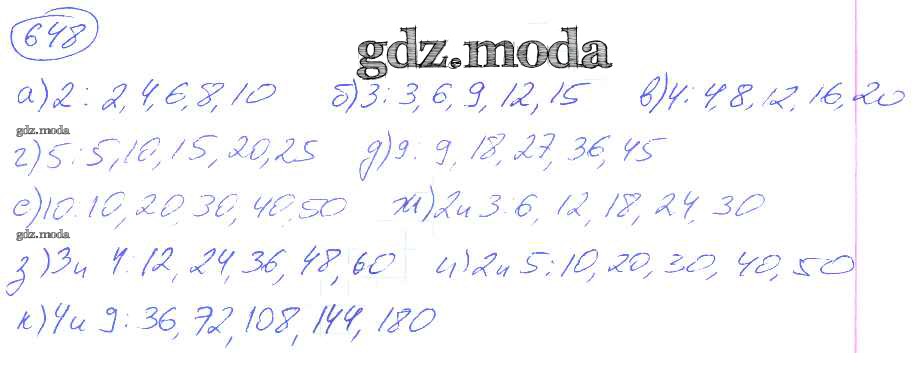 648
gdz.moda
а) 2: 2, 4, 6, 8, 10 б) 3: 3, 6, 9, 12, 15 в) 4: 4, 8, 12, 16, 20
gdz.moda
г) 5: 5, 10, 15, 20, 25 д) 9: 9, 18, 27, 36, 45
е) 10: 10, 20, 30, 40, 50 ж) 2 и 3: 6, 12, 18, 24, 30
gdz.moda
з) 3 и 4: 12, 24, 36, 48, 60 и) 2 и 5: 10, 20, 30, 40, 50
к) 4 и 9: 36, 72, 108, 144, 180